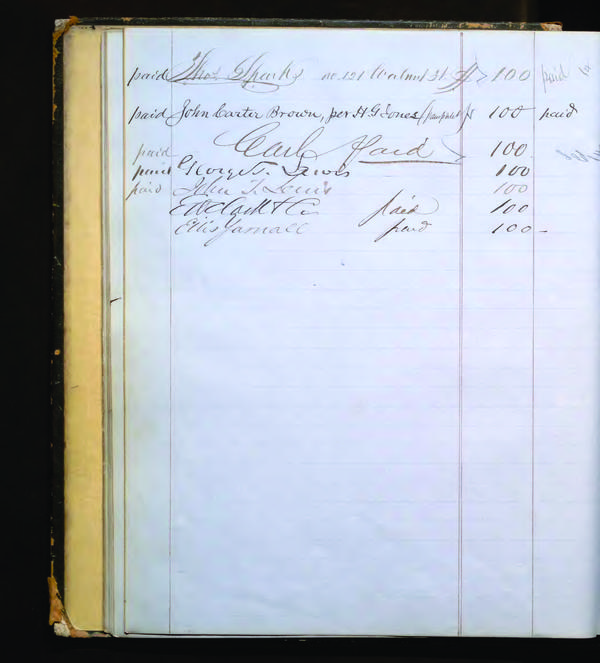 paid Thos Sparks no. 121 Walnut St. $ 100 paid
paid John Carter Brown, per H G Jones $ 100 paid
paid Cash Paid 100
paid George T. Lewis 100
paid John T. Lewis 100
E W Clark & Co paid 100
Ellis Yarnall paid 100-